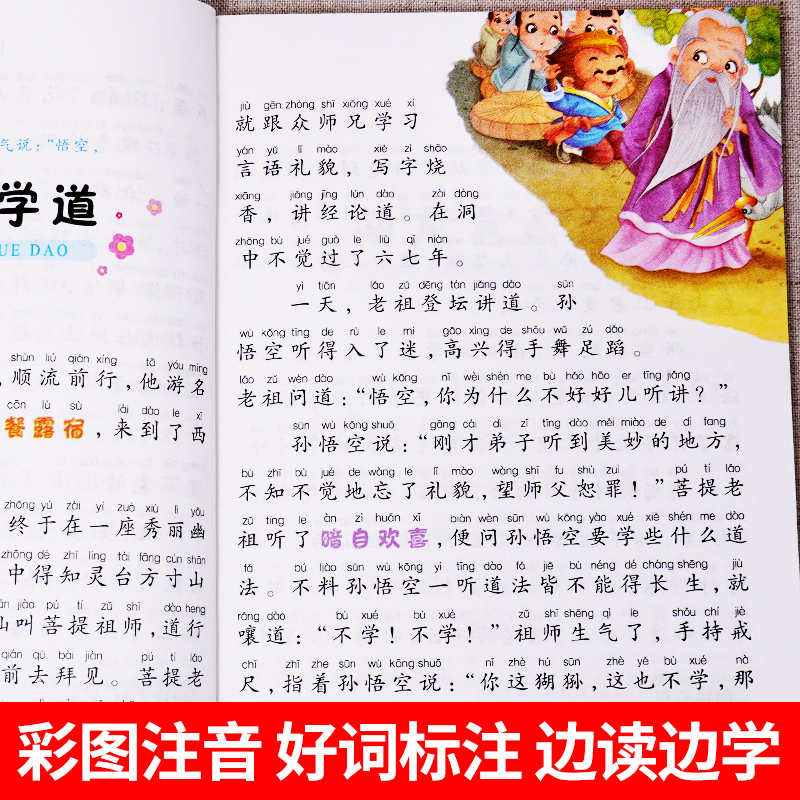 气说：“悟空，
学道
UE DAO
shùn liú qián xíng tā yóu míng
，顺流前行，他游名
cān lù sù lái dào le xī
餐露宿，来到了西
zhōng yú zài yí zuò xiù lì yōu
终于在一座秀丽幽
zhōng dé zhī líng tái fāng cùn shān
中得知灵台方寸山
jiào pú tí zǔ shī dào heng
山叫菩提祖师，道行
qián qù bài jiàn pú tí lǎo
前去拜见。菩提老
jiù gēn zhòng shī xiōng xué xí
就跟众师兄学习
yán yǔ lǐ mào xiě zì shāo
言语礼貌，写字烧
xiāng jiǎng jīng lùn dào zài dòng
香，讲经论道。在洞
zhōng bù jué guò le liù qī nián
中不觉过了六七年。
yì tiān lǎo zǔ dēng tán jiǎng dào sūn
一天，老祖登坛讲道。孙
wù kōng tīng de rù le mí gāo xìng de shǒu wǔ zú dǎo
悟空听得入了迷，高兴得手舞足蹈。
lǎo zǔ wèn dào wù kōng nǐ wèi shén me bù hǎo hǎo er tīng jiǎng
老祖问道：“悟空，你为什么不好好儿听讲？”
sūn wù kōng shuō gāng cái dì zǐ tīng dào měi miào de dì fang
孙悟空说：“刚才弟子听到美妙的地方，
bù zhī bù jué de wàng le lǐ mào wàng shī fu shù zuì pú tí lǎo
不知不觉地忘了礼貌，望师父恕罪！”菩提老
zǔ tīng le àn zì huān xǐ biàn wèn sūn wù kōng yào xué xiē shén me dào
祖听了暗自欢喜，便问孙悟空要学些什么道
fǎ bú liào sūn wù kōng yì tīng dào fǎ jiē bù néng dé cháng shēng jiù
法。不料孙悟空一听道法皆不能得长生，就
rǎng dào bù xué bù xué zǔ shī shēng qì le shǒu chí jiè
嚷道：“不学！不学！”祖师生气了，手持戒
chǐ zhǐ zhe sūn wù kōng shuō nǐ zhè hú sūn zhè yě bù xué nà
尺，指着孙悟空说：“你这猢狲，这也不学，那
彩图注音 好词标注 边读边学